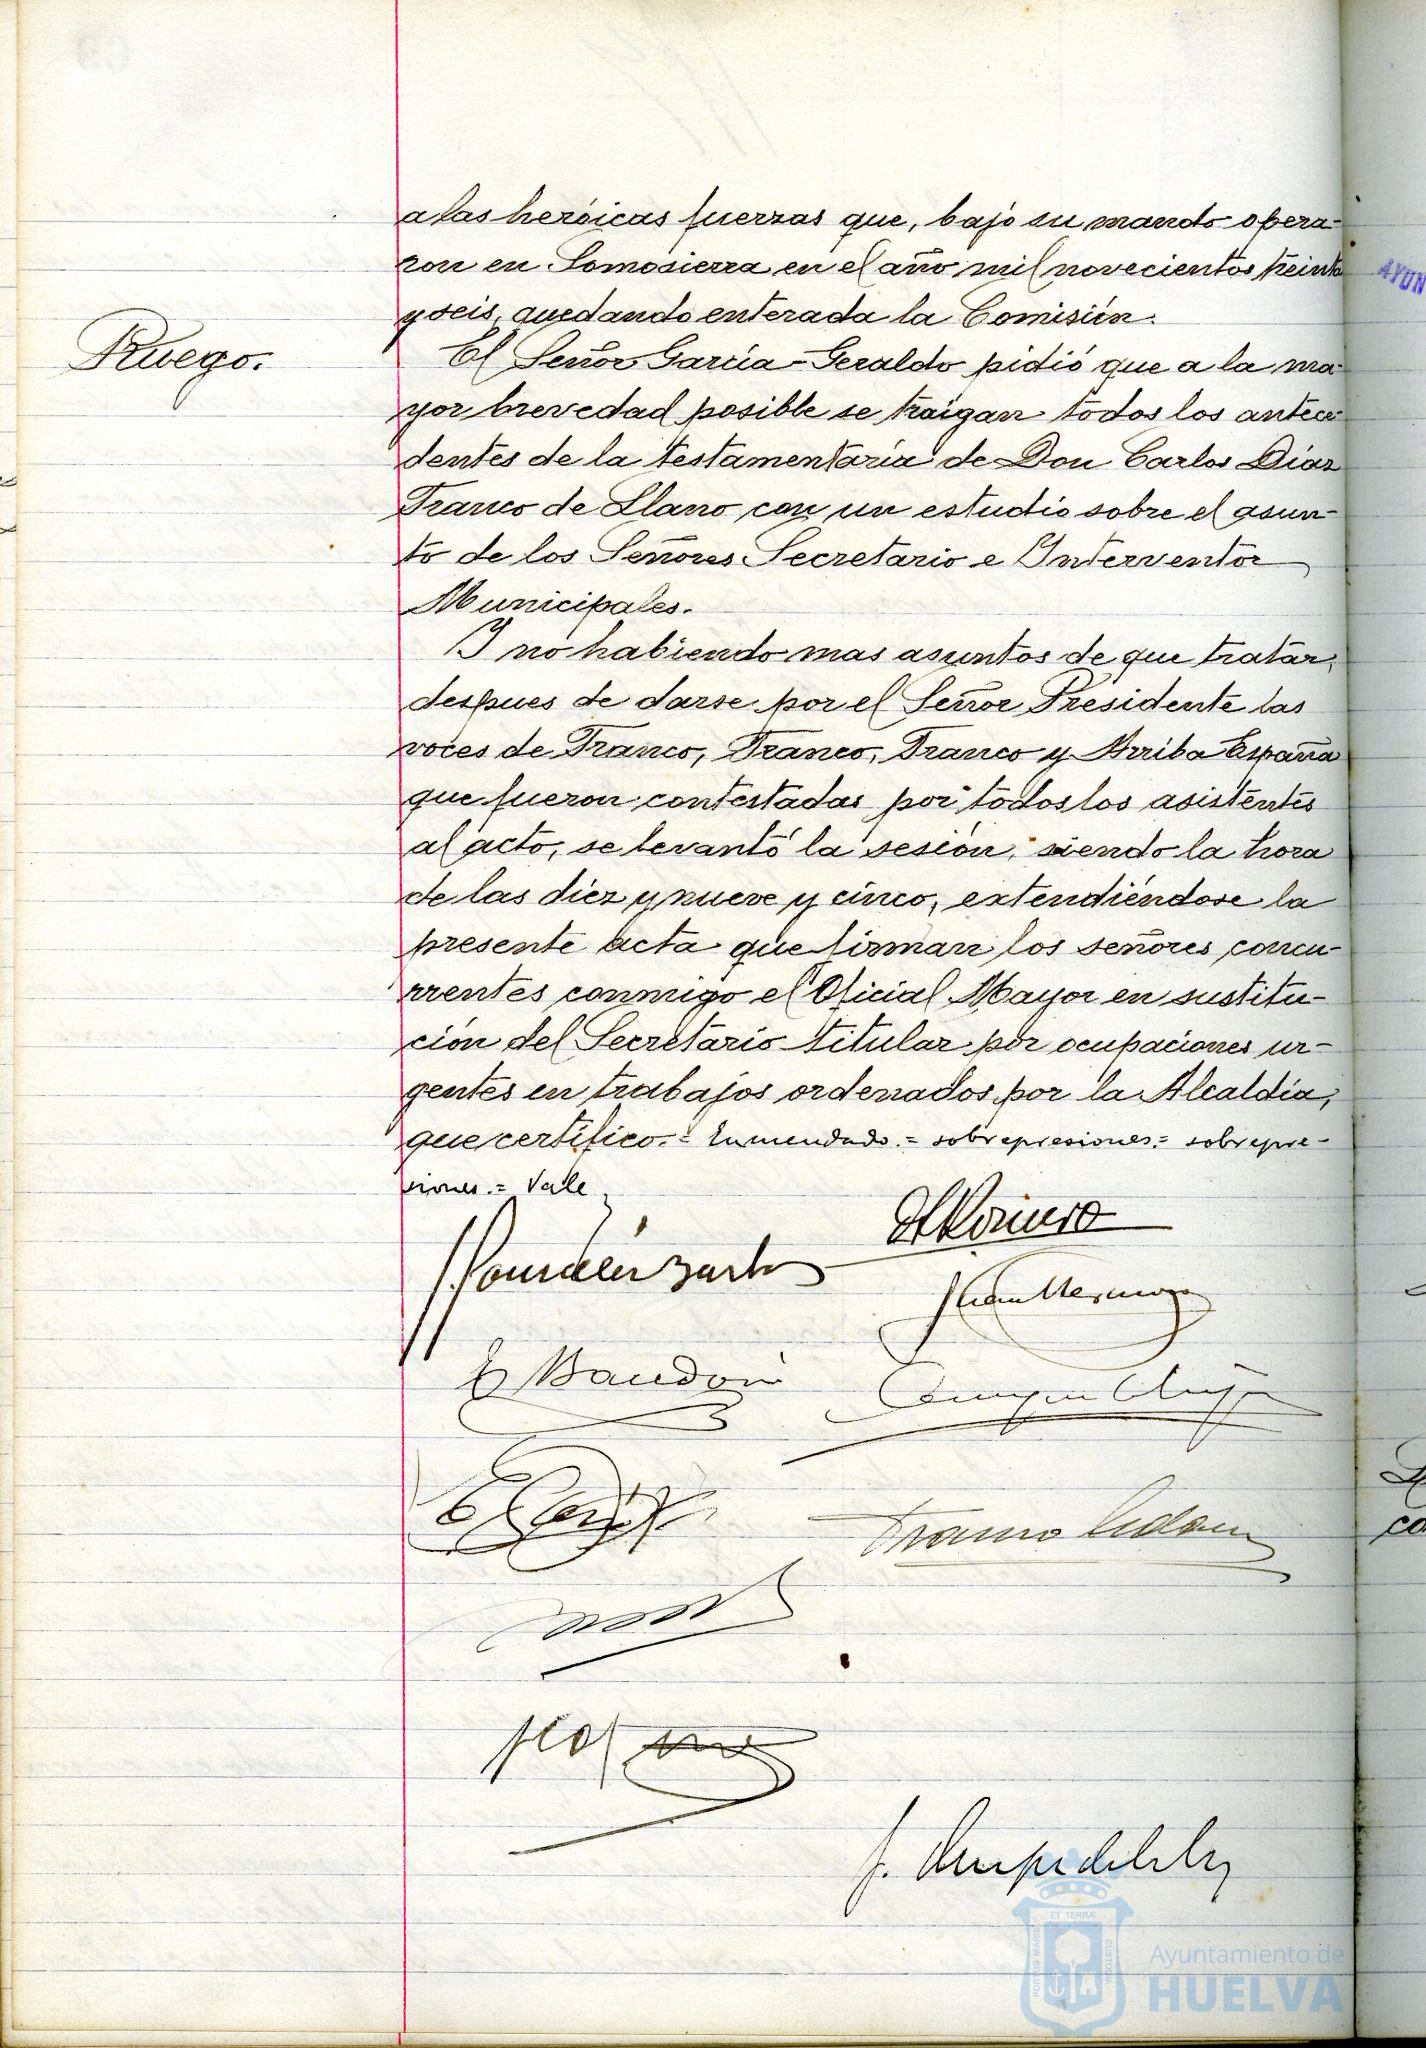 a las heróicas fuerzas que, bajo su mando opera-
ron en Somosierra en el año mil novecientos treinta
y seis, quedando enterada la Comisión.
Ruego.
El Señor García-Geraldo pidió que a la ma-
yor brevedad posible se traigan todos los antece-
dentes de la testamentaría de Don Carlos Díaz
Franco de Llano con un estudio sobre el asun-
to de los Señores Secretario e Interventor
Municipales.
Y no habiendo mas asuntos de que tratar,
despues de darse por el Señor Presidente las
voces de Franco, Franco, Franco y Arriba España
que fueron contestadas por todos los asistentes
al acto, se levantó la sesión, siendo la hora
de las diez y nueve y cinco, extendiéndose la
presente acta que firman los señores concu-
rrentes conmigo el Oficial Mayor en sustitu-
ción del Secretario titular por ocupaciones ur-
gentes en trabajos ordenados por la Alcaldía,
que certifico.= Enmendado.= sobrepresiones.= sobrepre-
siones.= Vale
E Baudoin
AYUN
PORTUS MARIS ET TERRÆ CUSTODIA
Ayuntamiento de
HUELVA